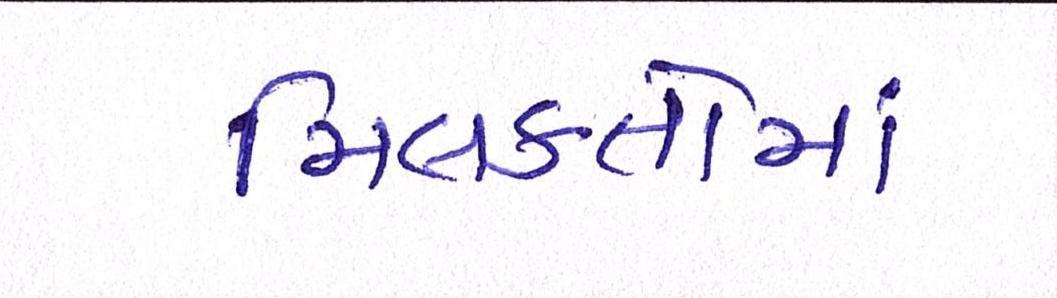 મિલકતોમાં